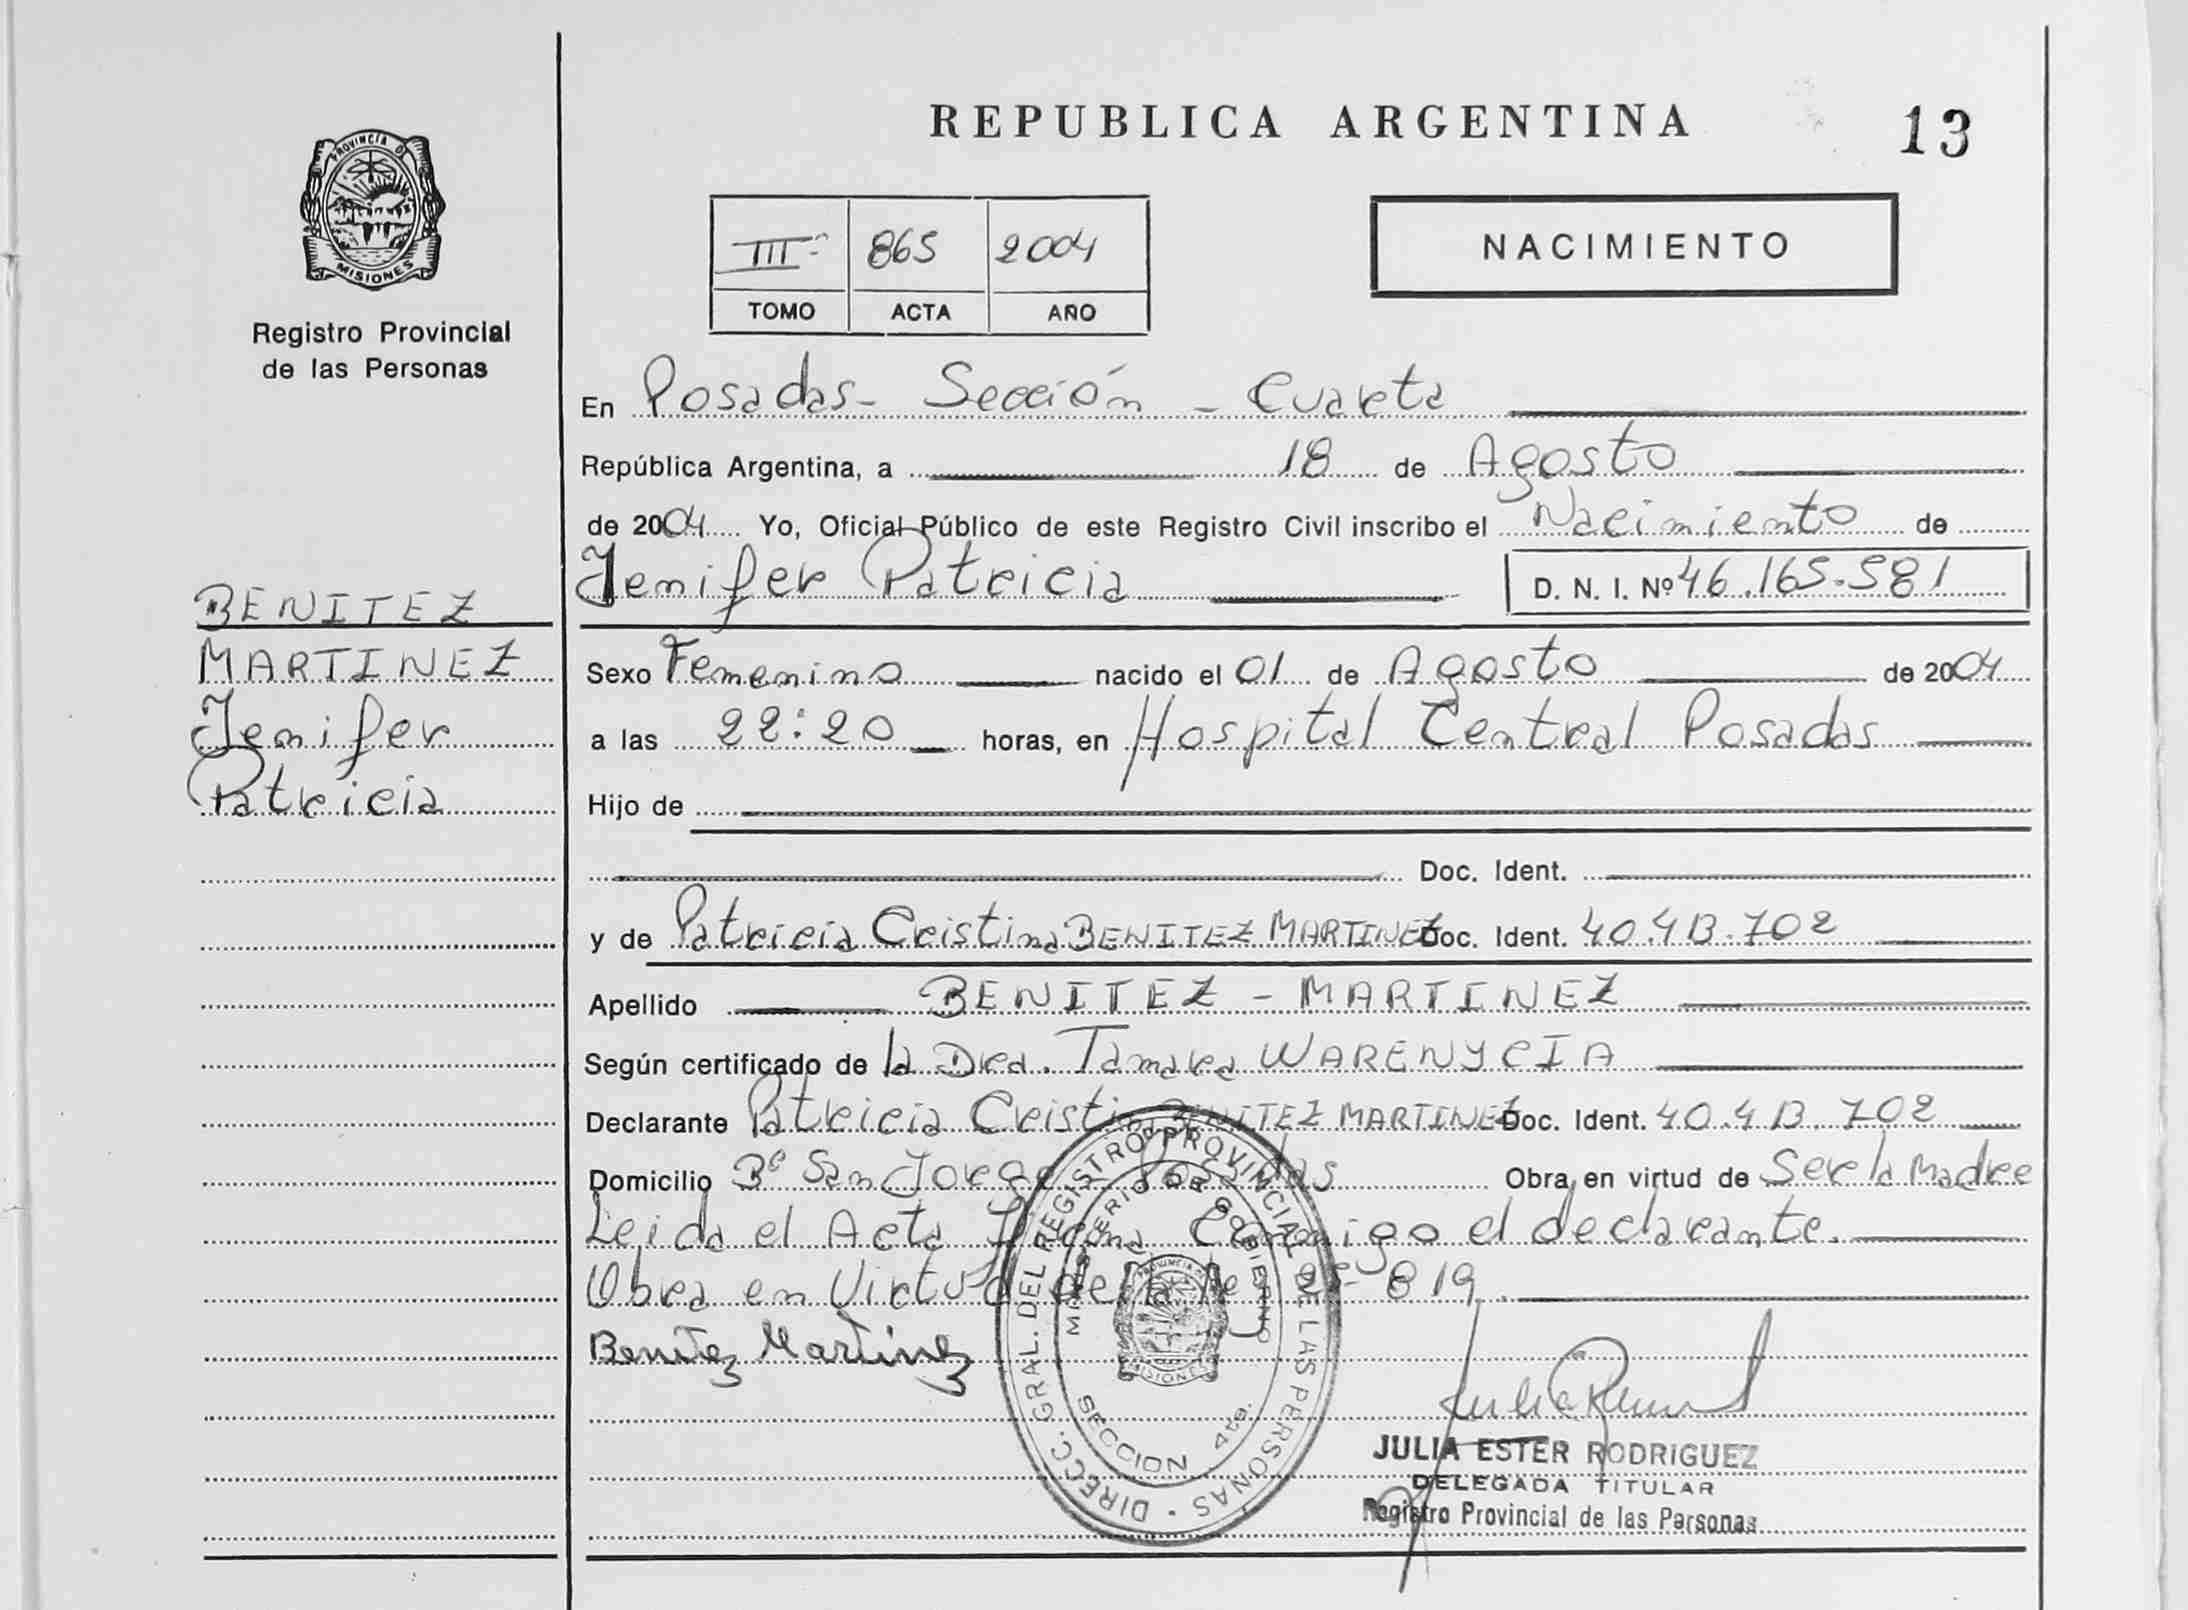 REPUBLICA ARGENTINA
13
PROVINCIA DE
MISIONES
Registro Provincial
de las Personas
III
865
2004
TOMO
ACTA
AÑO
NACIMIENTO
En Posadas - Sección - Cuarta
República Argentina, a 18 de Agosto
de 2004 Yo, Oficial Público de este Registro Civil inscribo el Nacimiento de
Jenifer Patricia D. N. I. Nº 46.165.581
BENITEZ
MARTINEZ
Jenifer
Patricia
Sexo Femenino nacido el 01 de Agosto de 2004
a las 22:20 horas, en Hospital Central Posadas
Hijo de
Doc. Ident.
y de Patricia Cristina BENITEZ MARTINEZ Doc. Ident. 40.413.702
Apellido BENITEZ - MARTINEZ
Según certificado de la Dra. Tamara WARENYCIA
Declarante Patricia Cristina BENITEZ MARTINEZ Doc. Ident. 40.413.702
Domicilio Bº San Jorge Posadas Obra en virtud de Ser la Madre
Leida el Acta Firma Conmigo el declarante.
Obra en Virtud de la Ley 25-819.
Benitez Martinez
DIRECC. GRAL. DEL REGISTRO PROVINCIAL DE LAS PERSONAS
MINISTERIO DE GOBIERNO
PROVINCIA DE
MISIONES
SECCION 4ta.
JULIA ESTER RODRIGUEZ
DELEGADA TITULAR
Registro Provincial de las Personas